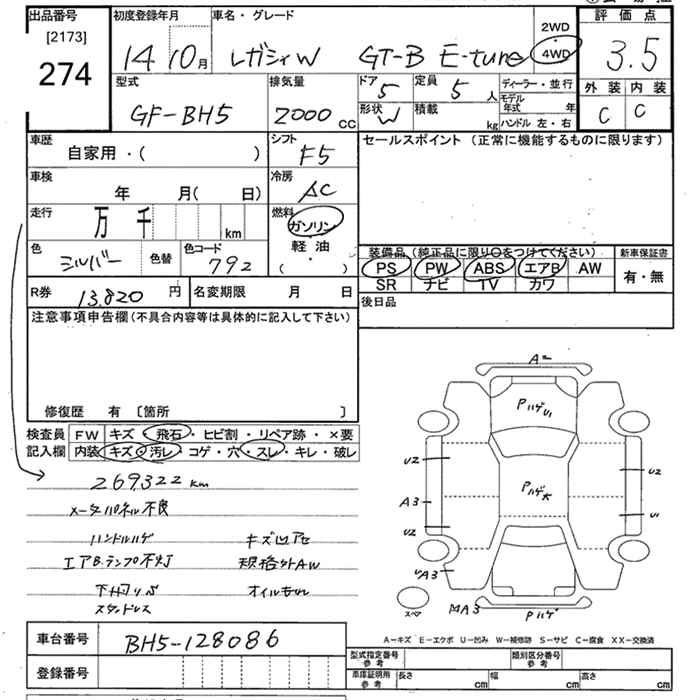 出品番号 初度登録年月 車名・グレード 2WD 評価点
[2173] 14 10月 レガシィW GT-B E-tune 4WD 3.5
274
型式 排気量 ドア 定員 ディーラー・並行 外装 内装
GF-BH5 2000cc 5 5人 モデル年式 年 C C
形状 積載 ハンドル 左・右
W kg
車歴 シフト セールスポイント (正常に機能するものに限ります)
自家用・( ) F5
車検 冷房
年 月( 日) AC
走行 燃料
万 千 km ガソリン
軽油
色 色替 色コード ( ・ )
シルバー 792
装備品 (純正品に限り○をつけてください) 新車保証書
PS PW ABS エアB AW 有・無
SR ナビ TV カワ
R券 13,820円 名変期限 月 日 後日品
注意事項申告欄(不具合内容等は具体的に記入して下さい)
修復歴 有 〔箇所 〕
検査員 FW キズ・飛石・ヒビ割・リペア跡・×要
記入欄 内装 キズ・汚レ・コゲ・穴・スレ・キレ・破レ
269322km
メータパネル不良
ハンドルハゲ キズ凹アセ
エアB.ランプ不灯 規格外AW
下廻りサビ オイルもれ
スタッドレス
A2
PハゲU1
U2 U2
Pハゲ大
A3 U1
U2
UA3
スペア MA3 Pハゲ
A-キズ E-エクボ U-凹み W-補修跡 S-サビ C-腐食 XX-交換済
車台番号 BH5-128086 型式指定番号 参考 類別区分番号 参考
登録番号 車庫証明用 参考 長さ cm 幅 cm 高さ cm